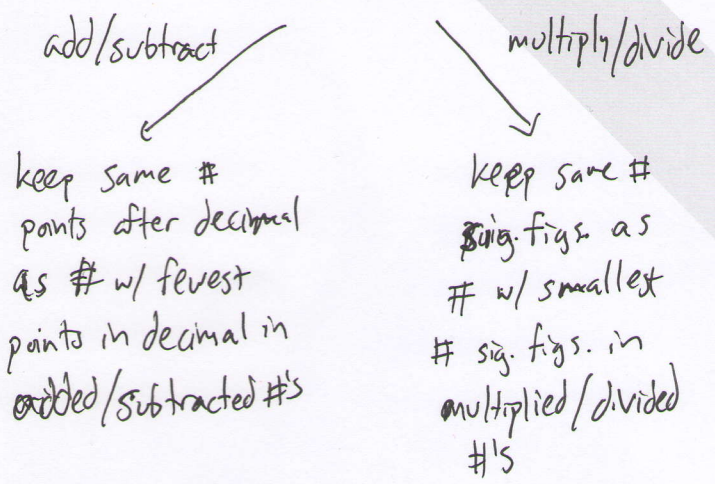 add/subtract
multiply/divide
keep same #
points after decimal
as # w/ fewest
points in decimal in
added/subtracted #'s
keep same #
sig. figs. as
# w/ smallest
# sig. figs. in
multiplied/divided
#'s